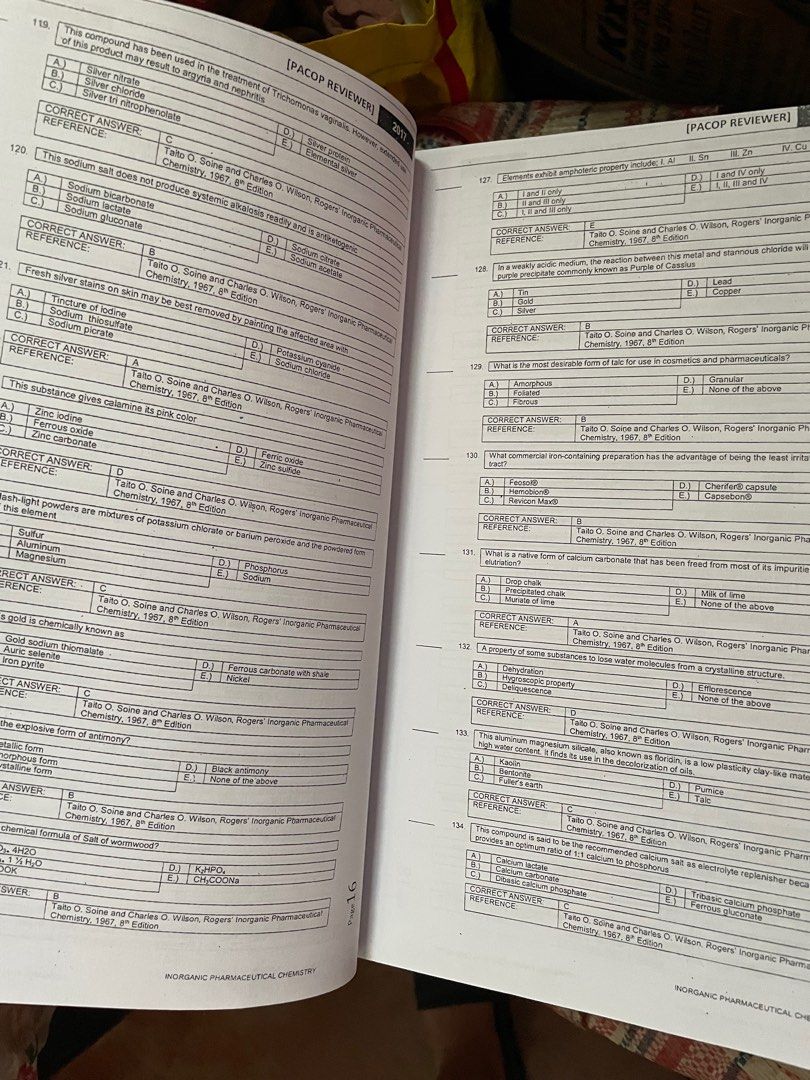 [PACOP REVIEWER] 2017
119. This compound has been used in the treatment of Trichomonas vaginalis. However, extended use
of this product may result to argyria and nephritis.
A.) Silver nitrate D.) Silver protein
B.) Silver chloride E.) Elemental silver
C.) Silver tri nitrophenolate
CORRECT ANSWER: C
REFERENCE: Taito O. Soine and Charles O. Wilson, Rogers' Inorganic Pharmaceutical
Chemistry, 1967, 8th Edition
120. This sodium salt does not produce systemic alkalosis readily and is antiketogenic
A.) Sodium bicarbonate D.) Sodium citrate
B.) Sodium lactate E.) Sodium acetate
C.) Sodium gluconate
CORRECT ANSWER: B
REFERENCE: Taito O. Soine and Charles O. Wilson, Rogers' Inorganic Pharmaceutical
Chemistry, 1967, 8th Edition
21. Fresh silver stains on skin may be best removed by painting the affected area with
A.) Tincture of iodine D.) Potassium cyanide
B.) Sodium thiosulfate E.) Sodium chloride
C.) Sodium picrate
CORRECT ANSWER: A
REFERENCE: Taito O. Soine and Charles O. Wilson, Rogers' Inorganic Pharmaceutical
Chemistry, 1967, 8th Edition
This substance gives calamine its pink color
A.) Zinc iodine D.) Ferric oxide
B.) Ferrous oxide E.) Zinc sulfide
C.) Zinc carbonate
CORRECT ANSWER: D
REFERENCE: Taito O. Soine and Charles O. Wilson, Rogers' Inorganic Pharmaceutical
Chemistry, 1967, 8th Edition
lash-light powders are mixtures of potassium chlorate or barium peroxide and the powdered form
this element
Sulfur D.) Phosphorus
Aluminum E.) Sodium
Magnesium
RECT ANSWER: C
ERENCE: Taito O. Soine and Charles O. Wilson, Rogers' Inorganic Pharmaceutical
Chemistry, 1967, 8th Edition
s gold is chemically known as
Gold sodium thiomalate D.) Ferrous carbonate with shale
Auric selenite E.) Nickel
Iron pyrite
CT ANSWER: C
ENCE: Taito O. Soine and Charles O. Wilson, Rogers' Inorganic Pharmaceutical
Chemistry, 1967, 8th Edition
the explosive form of antimony?
etallic form D.) Black antimony
morphous form E.) None of the above
ystalline form
ANSWER: B
CE: Taito O. Soine and Charles O. Wilson, Rogers' Inorganic Pharmaceutical
Chemistry, 1967, 8th Edition
chemical formula of Salt of wormwood?
4H2O D.) K₂HPO₄
1 ½ H₂O E.) CH₃COONa
OOK
SWER: B
Taito O. Soine and Charles O. Wilson, Rogers' Inorganic Pharmaceutical
Chemistry, 1967, 8th Edition
Page 16
INORGANIC PHARMACEUTICAL CHEMISTRY
[PACOP REVIEWER]
127. Elements exhibit amphoteric property include; I. Al II. Sn III. Zn IV. Cu
A.) I and II only D.) I and IV only
B.) II and III only E.) I, II, III and IV
C.) I, II and III only
CORRECT ANSWER: E
REFERENCE: Taito O. Soine and Charles O. Wilson, Rogers' Inorganic P
Chemistry, 1967, 8th Edition
128. In a weakly acidic medium, the reaction between this metal and stannous chloride will
purple precipitate commonly known as Purple of Cassius
A.) Tin D.) Lead
B.) Gold E.) Copper
C.) Silver
CORRECT ANSWER: B
REFERENCE: Taito O. Soine and Charles O. Wilson, Rogers' Inorganic Ph
Chemistry, 1967, 8th Edition
129. What is the most desirable form of talc for use in cosmetics and pharmaceuticals?
A.) Amorphous D.) Granular
B.) Foliated E.) None of the above
C.) Fibrous
CORRECT ANSWER: B
REFERENCE: Taito O. Soine and Charles O. Wilson, Rogers' Inorganic Ph
Chemistry, 1967, 8th Edition
130. What commercial iron-containing preparation has the advantage of being the least irrita
tract?
A.) Feosol® D.) Cherifer® capsule
B.) Hemobion® E.) Capsebon®
C.) Revicon Max®
CORRECT ANSWER: B
REFERENCE: Taito O. Soine and Charles O. Wilson, Rogers' Inorganic Pha
Chemistry, 1967, 8th Edition
131. What is a native form of calcium carbonate that has been freed from most of its impuritie
elutriation?
A.) Drop chalk D.) Milk of lime
B.) Precipitated chalk E.) None of the above
C.) Muriate of lime
CORRECT ANSWER: A
REFERENCE: Taito O. Soine and Charles O. Wilson, Rogers' Inorganic Phar
Chemistry, 1967, 8th Edition
132. A property of some substances to lose water molecules from a crystalline structure.
A.) Dehydration D.) Efflorescence
B.) Hygroscopic property E.) None of the above
C.) Deliquescence
CORRECT ANSWER: D
REFERENCE: Taito O. Soine and Charles O. Wilson, Rogers' Inorganic Pharm
Chemistry, 1967, 8th Edition
133. This aluminum magnesium silicate, also known as floridin, is a low plasticity clay-like mate
high water content. It finds its use in the decolorization of oils.
A.) Kaolin D.) Pumice
B.) Bentonite E.) Talc
C.) Fuller's earth
CORRECT ANSWER: C
REFERENCE: Taito O. Soine and Charles O. Wilson, Rogers' Inorganic Pharm
Chemistry, 1967, 8th Edition
134 This compound is said to be the recommended calcium salt as electrolyte replenisher becau
provides an optimum ratio of 1:1 calcium to phosphorus
A.) Calcium lactate D.) Tribasic calcium phosphate
B.) Calcium carbonate E.) Ferrous gluconate
C.) Dibasic calcium phosphate
CORRECT ANSWER C
REFERENCE: Taito O. Soine and Charles O. Wilson, Rogers' Inorganic Pharma
Chemistry, 1967, 8th Edition
INORGANIC PHARMACEUTICAL CHE